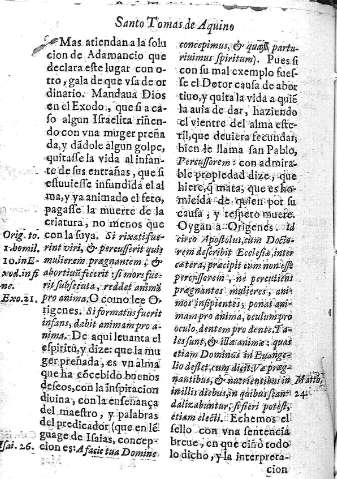 Santo Tomas de Aquino
Mas atiendan a la solu
cion de Adamancio que
declara este lugar con o-
tro, gala de que vsa de or
dinario. Mandaua Dios
en el Exodo, que si a ca-
so algun Israelita riñen-
do con vna muger preña
da, y dãdole algun golpe,
quitasse la vida al infan-
te de sus entrañas, que si
estuuiesse infundida el al
ma, y ya animado el feto,
pagasse la muerte de la
criatura, no menos que
con la suya. Si rixati fue-
rint viri, & percusserit quis
mulierem prægnantem, &
abortiuũ fecerit: si mors fue-
rit subsecuta, reddet animã
pro anima. O como lee O-
rigenes. Si formatus fuerit
infans, dabit animam pro a-
nima. De aqui leuanta el
espiritu, y dize: que la mu
ger preñada, es vn alma
que ha cõcebido buenos
deseos, con la inspiracion
diuina, con la enseñança
del maestro, y palabras
del predicador (que en lẽ
guage de Isaias, concep-
cion es: A facie tua Domine
Orig. to.
1. homil.
10. in E-
xod. in fi-
ne.
Exo. 21.
Isai. 26.
concepimus, & quasi partu-
riuimus spiritum). Pues si
con su mal exemplo fues-
se el Detor causa de abor
tiuo, y quita la vida a quiẽ
la auia de dar, haziendo
el vientre del alma este-
ril, que deuiera fecundar,
bien le llama san Pablo,
Percussorem: con admira-
ble propiedad dize, que
hiere, q̃ mata, que es ho-
micida de quien por su
causa, y respeto muere.
Oygan a Origenes. Id
circo Apostolus, cum Docto-
rem describit Ecclesiæ, inter
cætera, præcipit eum non esse
percussorem, ne percutiens
prægnantes mulieres, ani-
mas insipientes, ponat ani-
mam pro anima, oculum pro
oculo, dentem pro dente. Ta-
les sunt, & illæ animæ: quas
etiam Dominus in Euange-
lio deflet, cum dicit: Væ præg-
nantibus, & nutrientibus in
in illis diebus, in quibus scan-
dalizabuntur, si fieri potest,
etiam electi. Echemos el
sello con vna sentencia
breue, en que ciñò todo
lo dicho, y la interpreta-
cion
Matth.
24.